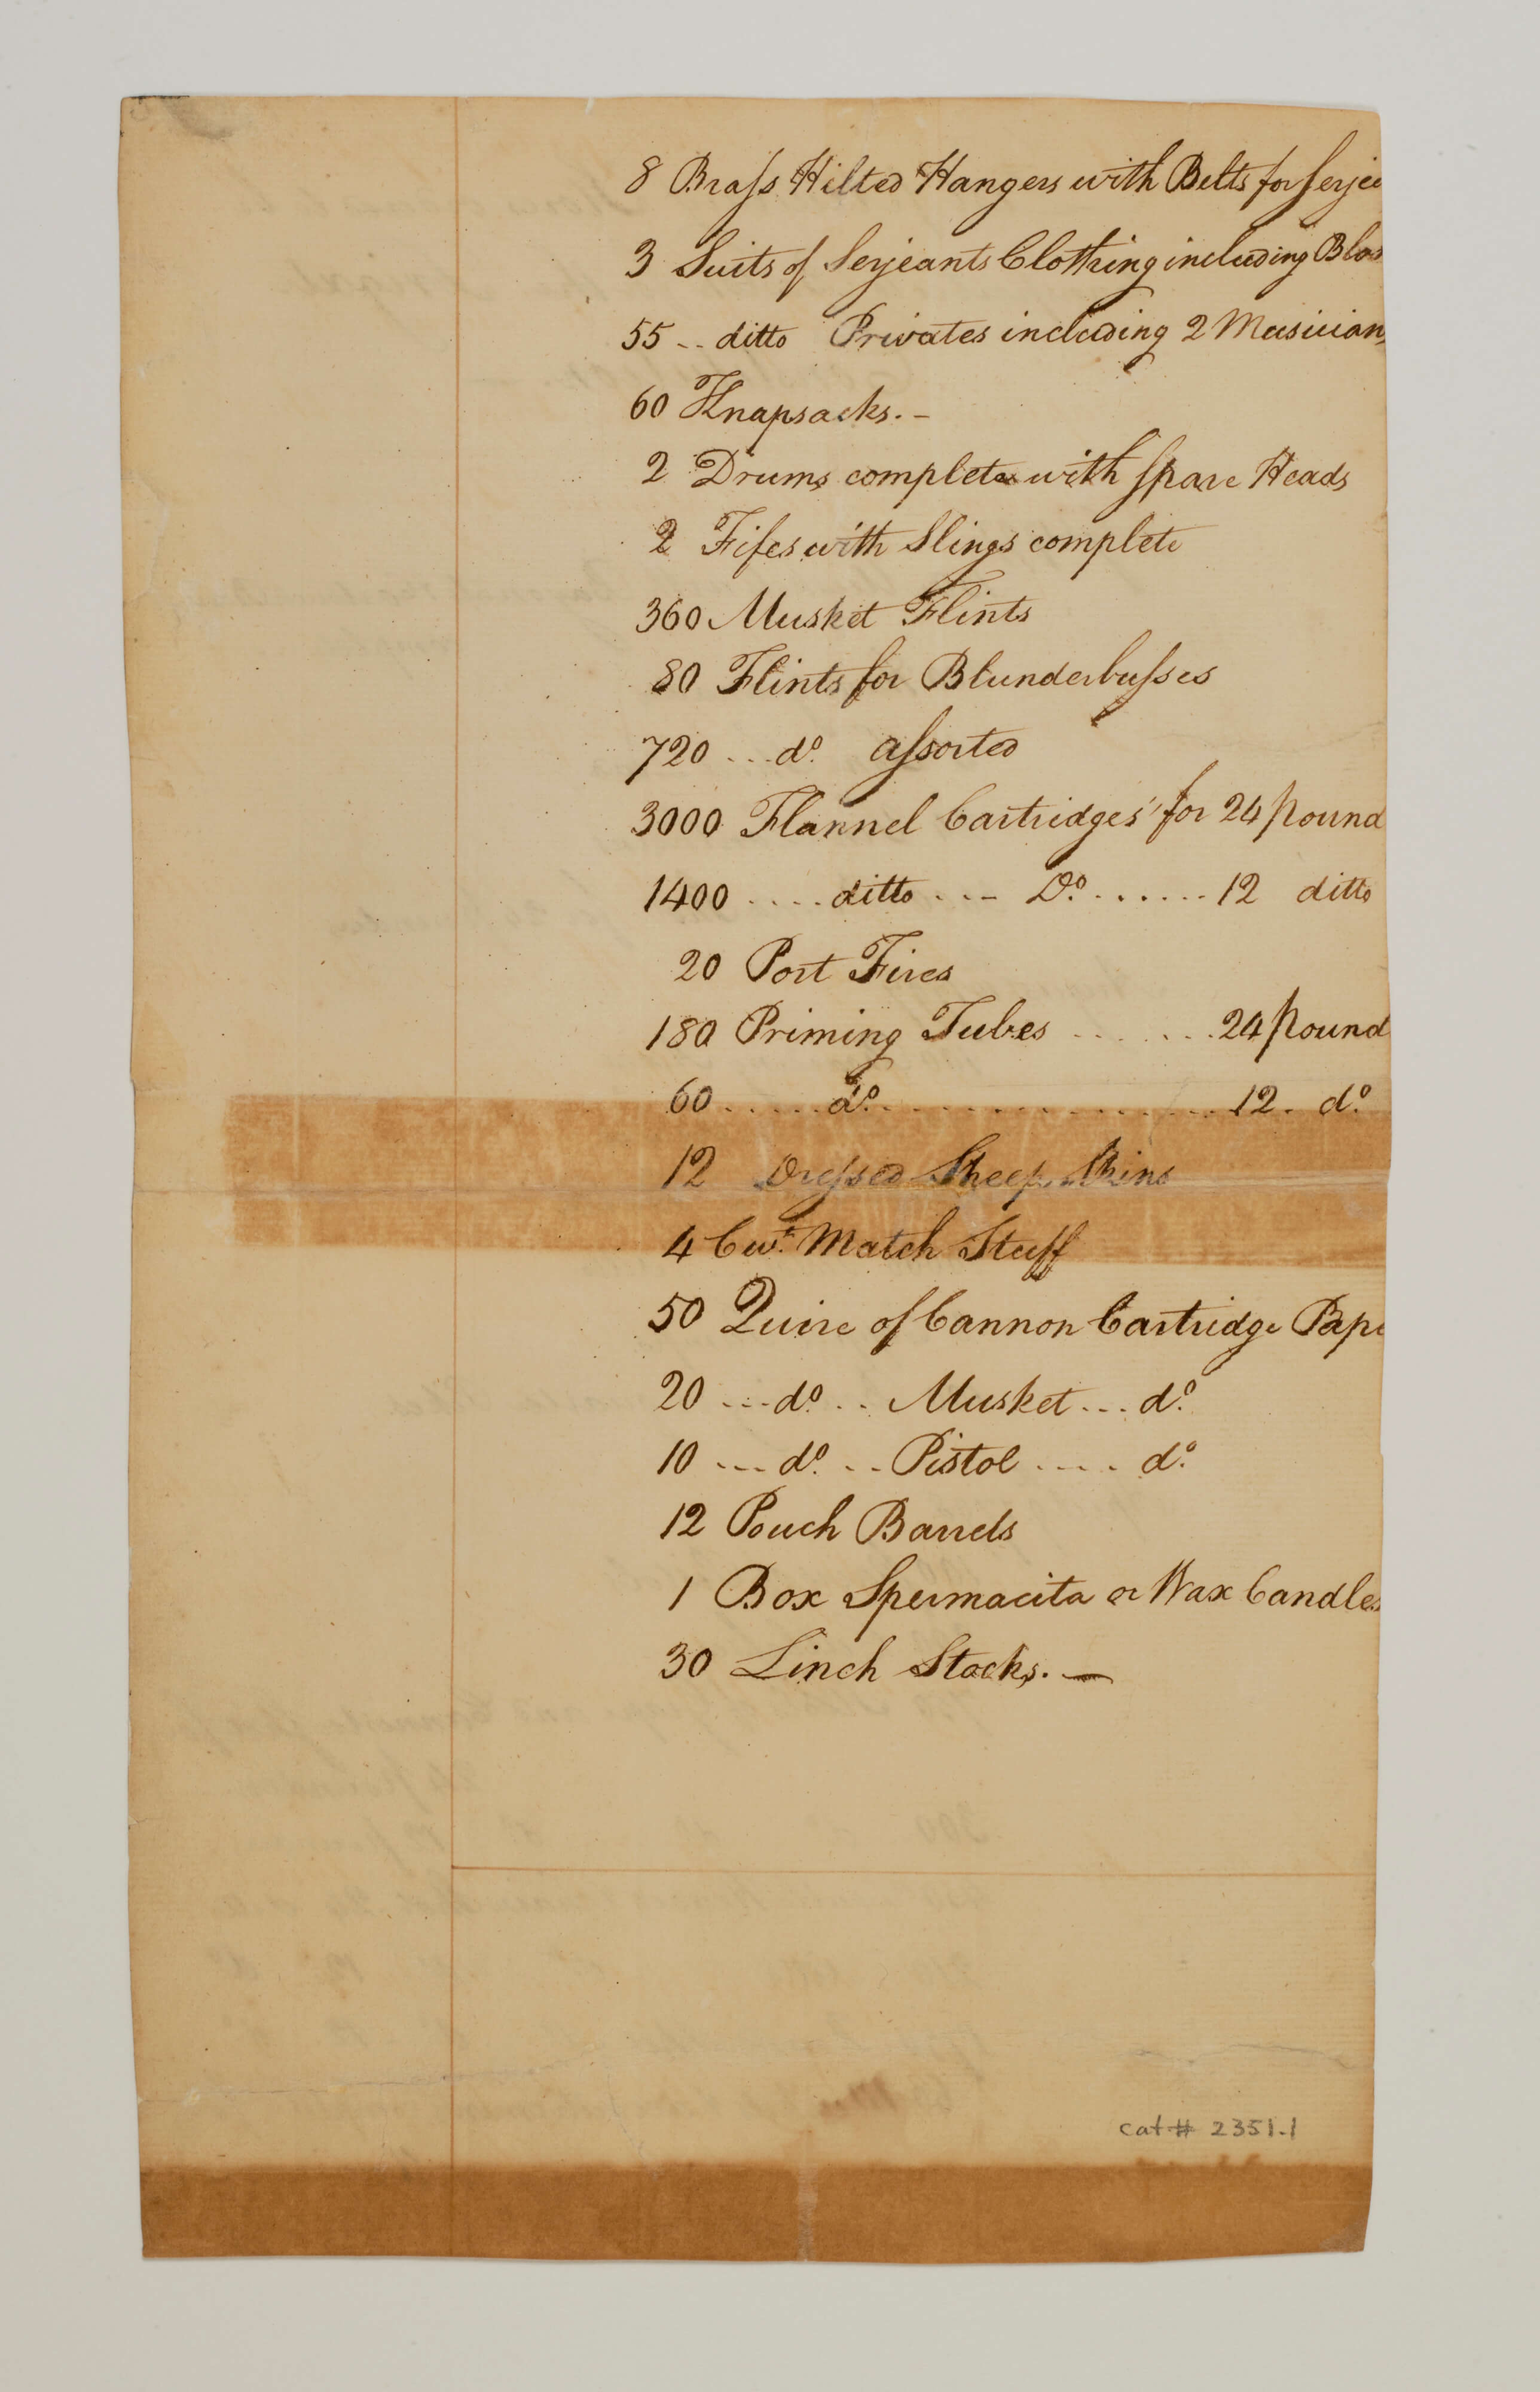 8 Braſs Hilted Hangers with Belts for Serjea
3 Suits of Serjeants Clothing including Blan
55 .. ditto Privates including 2 Musicians
60 Knapsacks. -
2 Drums complete with Spare Heads
2 Fifes with Slings complete
360 Musket Flints
80 Flints for Blunderbuſses
720 ... do. aſsorted
3000 Flannel Cartridges for 24 pound
1400 .... ditto ... Do. ...... 12 ditto
20 Port Fires
180 Priming Tubes ...... 24 pound
60 ..... do. .................. 12. do.
12 Dreſsed Sheep Skins
4 Cwt. Match Stuff
50 Quire of Cannon Cartridge Pape
20 ... do. .. Musket ... do.
10 ... do. .. Pistol .... do.
12 Pouch Barrels
1 Box Spermacita or Wax Candles
30 Linch Stocks. —
cat # 2351.1